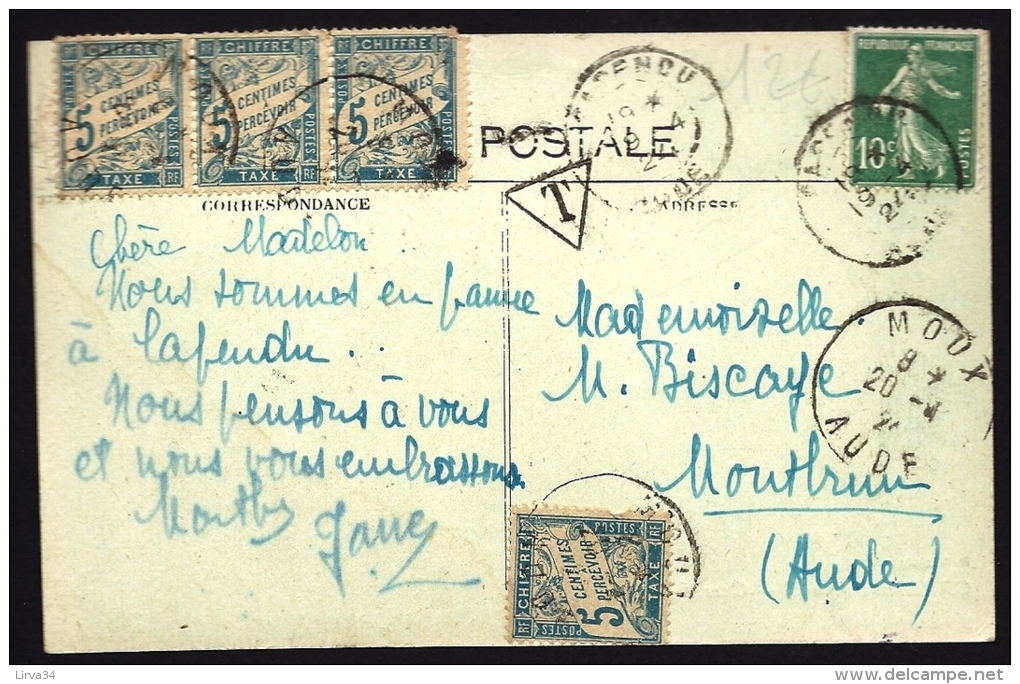 CHIFFRE
5
CENTIMES
À
PERCEVOIR
POSTES
TAXE
RF
CHIFFRE
5
CENTIMES
À
PERCEVOIR
POSTES
TAXE
RF
CHIFFRE
5
CENTIMES
À
PERCEVOIR
POSTES
TAXE
RF
12€
REPUBLIQUE FRANÇAISE
10 c
POSTES
POSTALE
T
CORRESPONDANCE
ADRESSE
Chère Madelon
Nous sommes en panne
à Capendu . .
Nous pensons à vous
et nous vous embrassons
Mademoiselle
M. Biscaye
Montbrun
(Aude)
MOUX
8 *
20 -4
AUDE
CHIFFRE
5
CENTIMES
À
PERCEVOIR
POSTES
TAXE
RF
Lirva34
www.delcampe.net